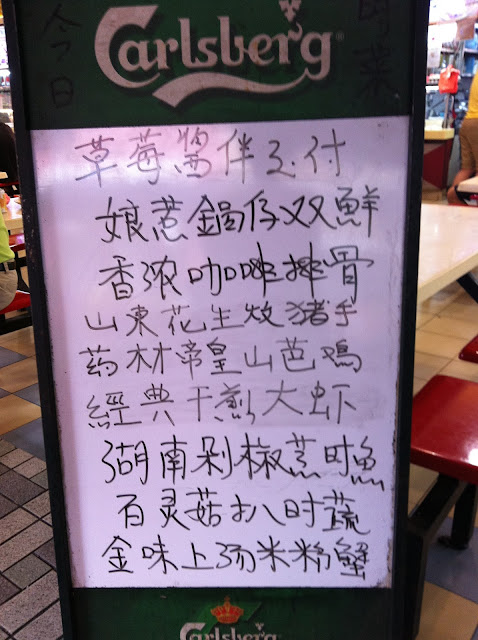 Carlsberg
今日
草莓醬伴支付
娘惹鍋仔双鮮
香浓咖啡排骨
山東花生炆猪手
药材帝皇山芭鸡
經典干煎大虾
湖南剁椒蒸时魚
百灵菇扒时蔬
金味上汤米粉蟹
Carlsberg